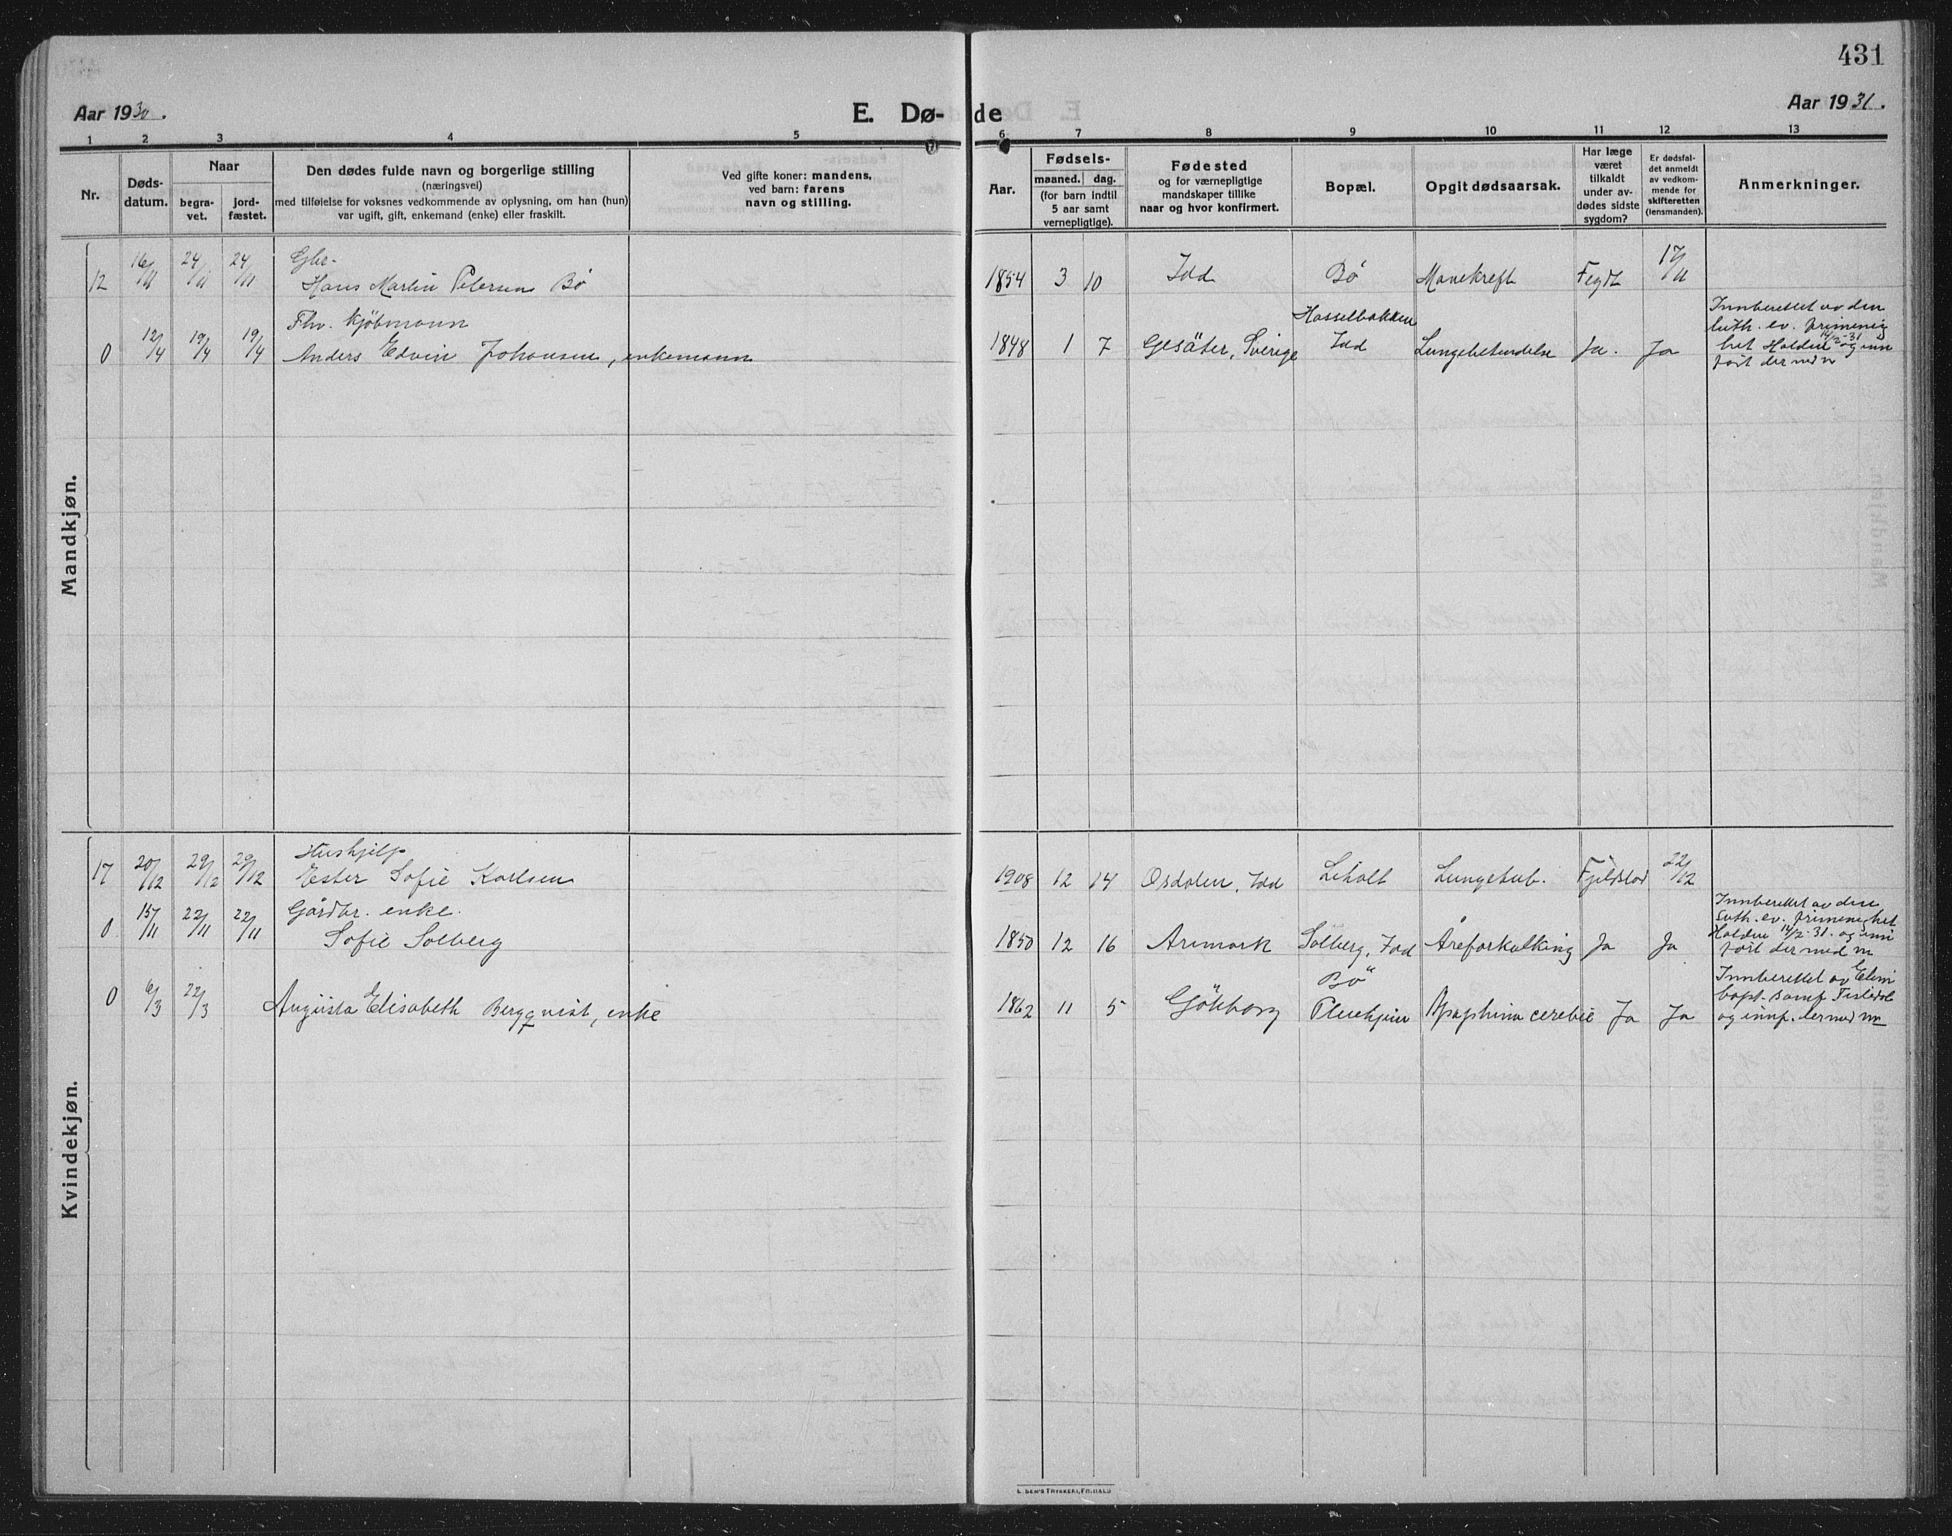 431
Aar 1930.
E. Dø-
de
Aar 1931.
1 2 3 4 5 6 7 8 9 10 11 12 13
Nr.
Døds-
datum.
Naar
begra-
vet.
jord-
fæstet.
Den dødes fulde navn og borgerlige stilling
(næringsvei)
med tilføielse for voksnes vedkommende av oplysning, om han (hun)
var ugift, gift, enkemand (enke) eller fraskilt.
Ved gifte koner: mandens,
ved barn: farens
navn og stilling.
Aar.
Fødsels-
maaned. dag.
(for barn indtil
5 aar samt
vernepligtige).
Fødested
og for værnepligtige
mandskaper tillike
naar og hvor konfirmert.
Bopæl.
Opgit dødsaarsak.
Har læge
været
tilkaldt
under av-
dødes sidste
sygdom?
Er dødsfal-
det anmeldt
av vedkom-
mende for
skifteretten
(lensmanden).
Anmerkninger.
Mandkjøn.
Gbr.
12 16/11 24/11 24/11 Hans Martin Petersen Bø 1854 3 10 Idd Bø Mavekreft Fegth 17/11
Fhv. kjøbmann
0 12/4 19/4 19/4 Anders Edvin Johansen, enkemann 1848 1 7 Gesäter, Sverige Hasselbakken Idd Lungebetendelse Ja. Ja
Innberettet av den
luth. ev. frimenig
het Halden 14/2-31 og inn
ført dermed
Kvindekjøn.
Hushjelp
17 20/12 29/12 29/12 Ester Sofie Karlsen 1908 12 14 Osdalen, Idd Liholt Lungetub. Fjeldstad 22/12
Gårdbr. enke.
0 15/11 22/11 22/11 Sofie Solberg 1850 12 16 Aremark Solberg, Idd Åreforkalkning Ja Ja
Innberettet av den
luth. ev. frimenighet
Halden 14/2-31. og inn
ført dermed
0 6/3 22/3 Augusta Elisabeth Bergqvist, enke 1862 11 5 Göteborg Bø cerebri Ja Ja
Innberettet av
bapt. samf.
og innf. dermed